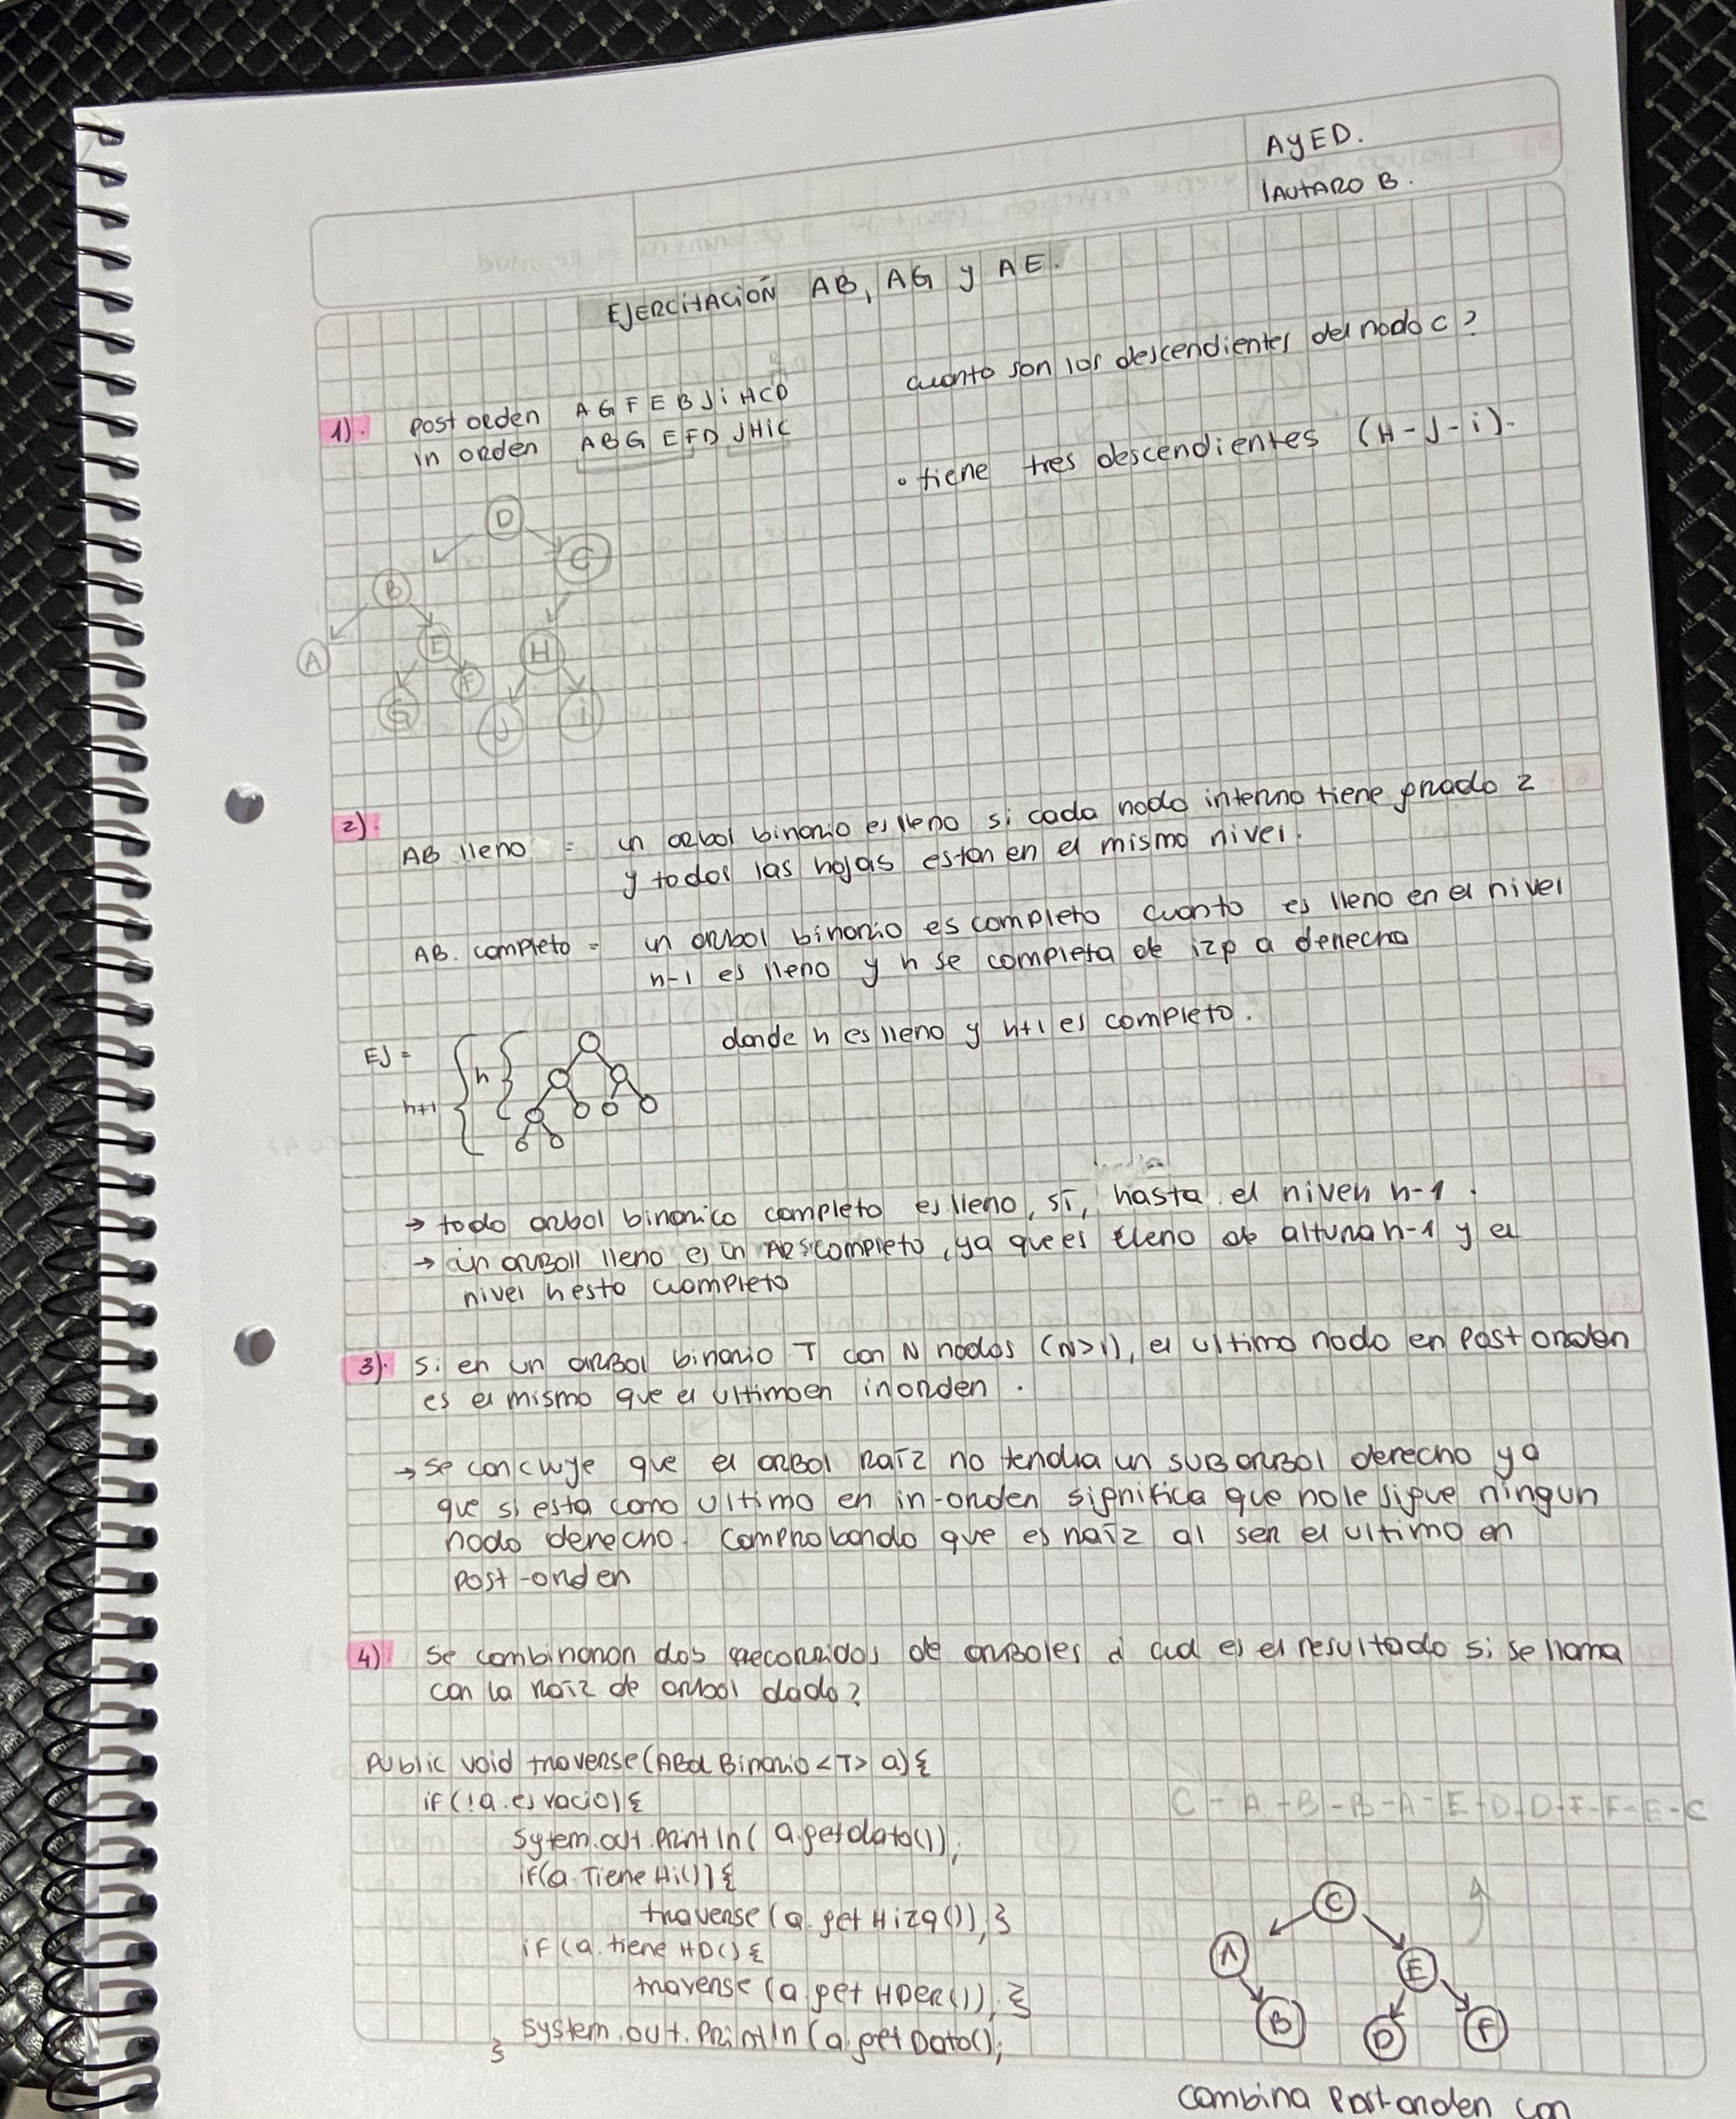 AyED.
LAUTARO B.
EJERCITACIÓN AB, AG y AE.
1). post orden AGFEBJiHCD
in orden ABGEFD JHiC
cuanto son los descendientes del nodo c?
• tiene tres descendientes (H-J-i).
D
C
B
A
E
H
G
F
J
i
2).
AB lleno = un arbol binario es lleno si cada nodo interno tiene grado 2
y todos las hojas estan en el mismo nivel.
AB. completo = un arbol binario es completo cuanto es lleno en el nivel
n-1 es lleno y h se completa de izq a derecha
EJ =
h
h+1
donde h es lleno y h+1 es completo.
→ todo arbol binario completo es lleno, sí, hasta el nivel h-1.
→ un arbol lleno es un completo, ya que es lleno de altura h-1 y el
nivel h esta completo
3). Si en un arbol binario T con N nodos (N>1), el ultimo nodo en Post orden
es el mismo que el ultimo en inorden.
→ se concluye que el arbol raíz no tendria un subarbol derecho ya
que si esta como ultimo en in-orden significa que no le sigue ningun
nodo derecho. Comprobando que es raíz al ser el ultimo en
post-orden
4) Se combinaron dos recorridos de arboles ¿ cual es el resultado si se llama
con la raíz de arbol dado?
Public void traverse(ArbolBinario<T> a){
if(!a.esvacio){
Sytem.out.println(a.getdato());
if(a.TieneHi()){
traverse(a.getHizq());}
if(a.tiene HD(){
traverse(a.get HDER());}
System.out.println(a.getDato();
}
C-A-B-B-A-E-D-D-F-F-E-C
C
A
E
B
D
F
combina Post-orden con